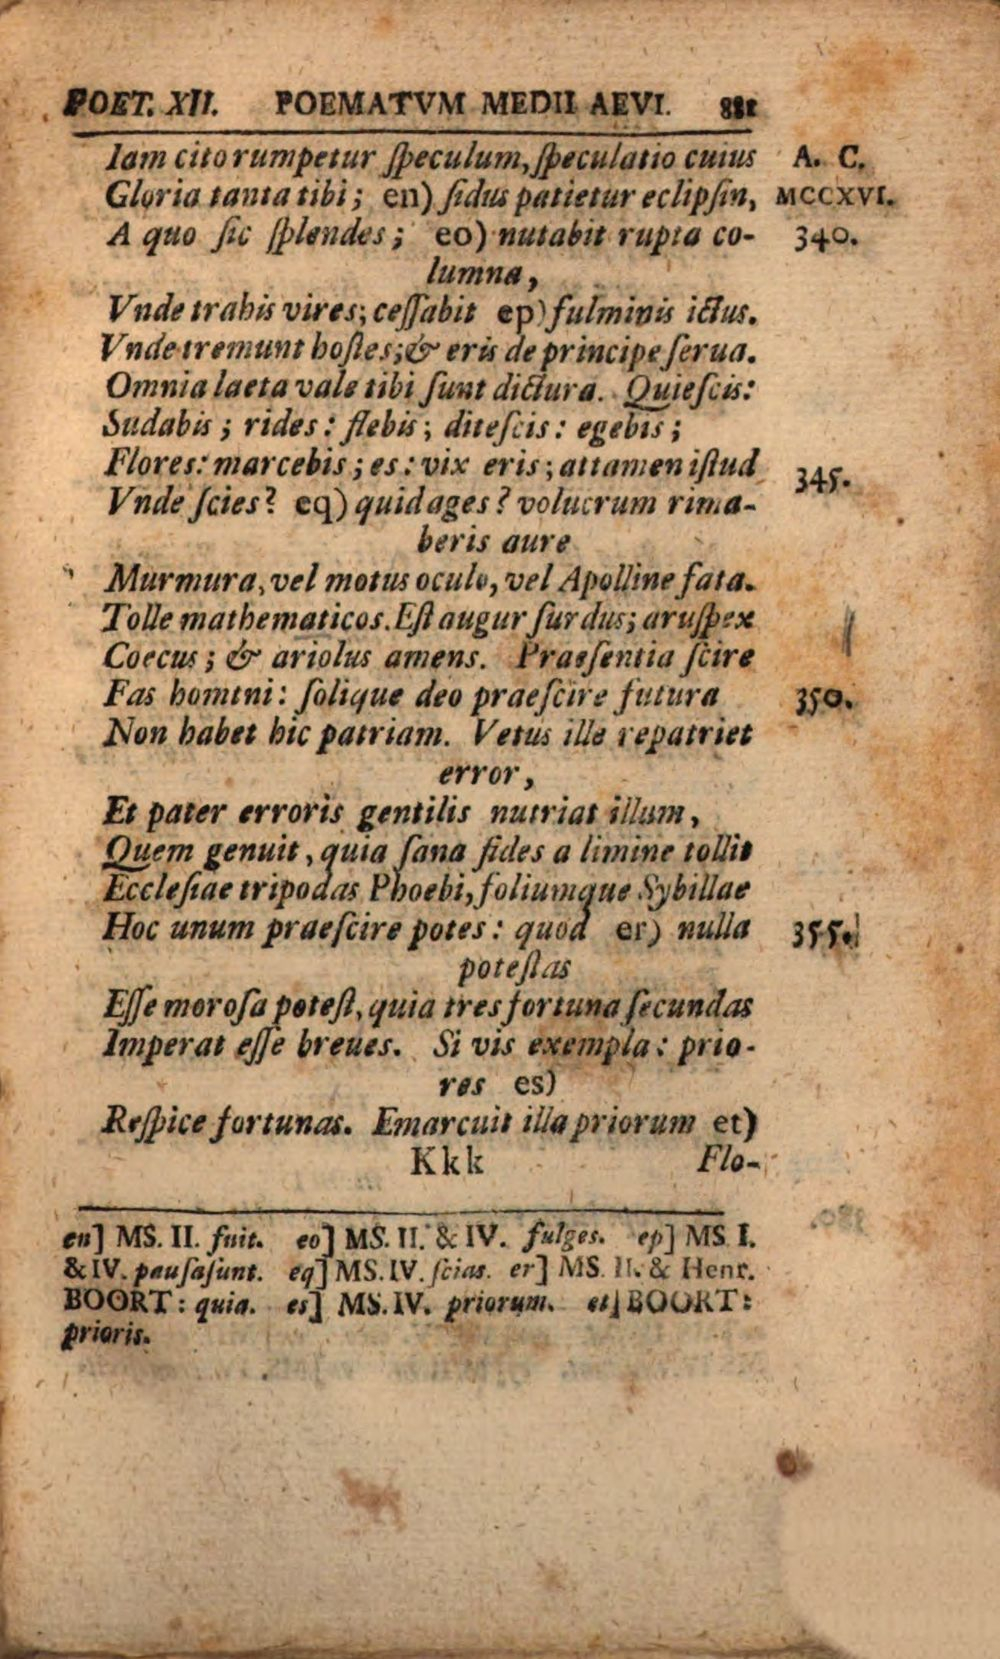 POET. XII. POEMATVM MEDII AEVI. 881
Iam cito rumpetur ſpeculum, ſpeculatio cuius A. C.
Gloria tanta tibi; en) ſidus patietur eclipſin, MCCXVI.
A quo ſic ſplendes; eo) nutabit rupta co- 340.
lumna,
Vnde trahis vires; ceſſabit ep) fulminis ictus.
Vnde tremunt hoſtes; & eris de principe ſerua.
Omnia laeta vale tibi ſunt dictura. Quieſcis:
Sudabis; rides: flebis; diteſcis: egebis;
Flores: marcebis; es: vix eris; attamen iſtud 345.
Vnde ſcies? eq) quid ages? volucrum rima-
beris aure
Murmura, vel motus oculo, vel Apolline fata.
Tolle mathematicos. Eſt augur ſurdus; aruſpex
Coecus; & ariolus amens. Praeſentia ſcire
Fas homini: ſolique deo praeſcire futura 350.
Non habet hic patriam. Vetus ille repatriet
error,
Et pater erroris gentilis nutriat illum,
Quem genuit, quia ſana fides a limine tollit
Eccleſiae tripodas Phoebi, foliumque Sybillae
Hoc unum praeſcire potes: quod er) nulla 355.
poteſtas
Eſſe moroſa poteſt, quia tres fortuna ſecundas
Imperat eſſe breues. Si vis exempla: prio-
res es)
Reſpice fortunas. Emarcuit illa priorum et)
Kkk Flo-
en] MS. II. fuit. eo] MS. II. & IV. fulges. ep] MS. I.
& IV. pauſaſunt. eq] MS. IV. ſcias. er] MS. II. & Henr.
BOORT: quia. es] MS. IV. priorum. et] BOORT:
prioris.